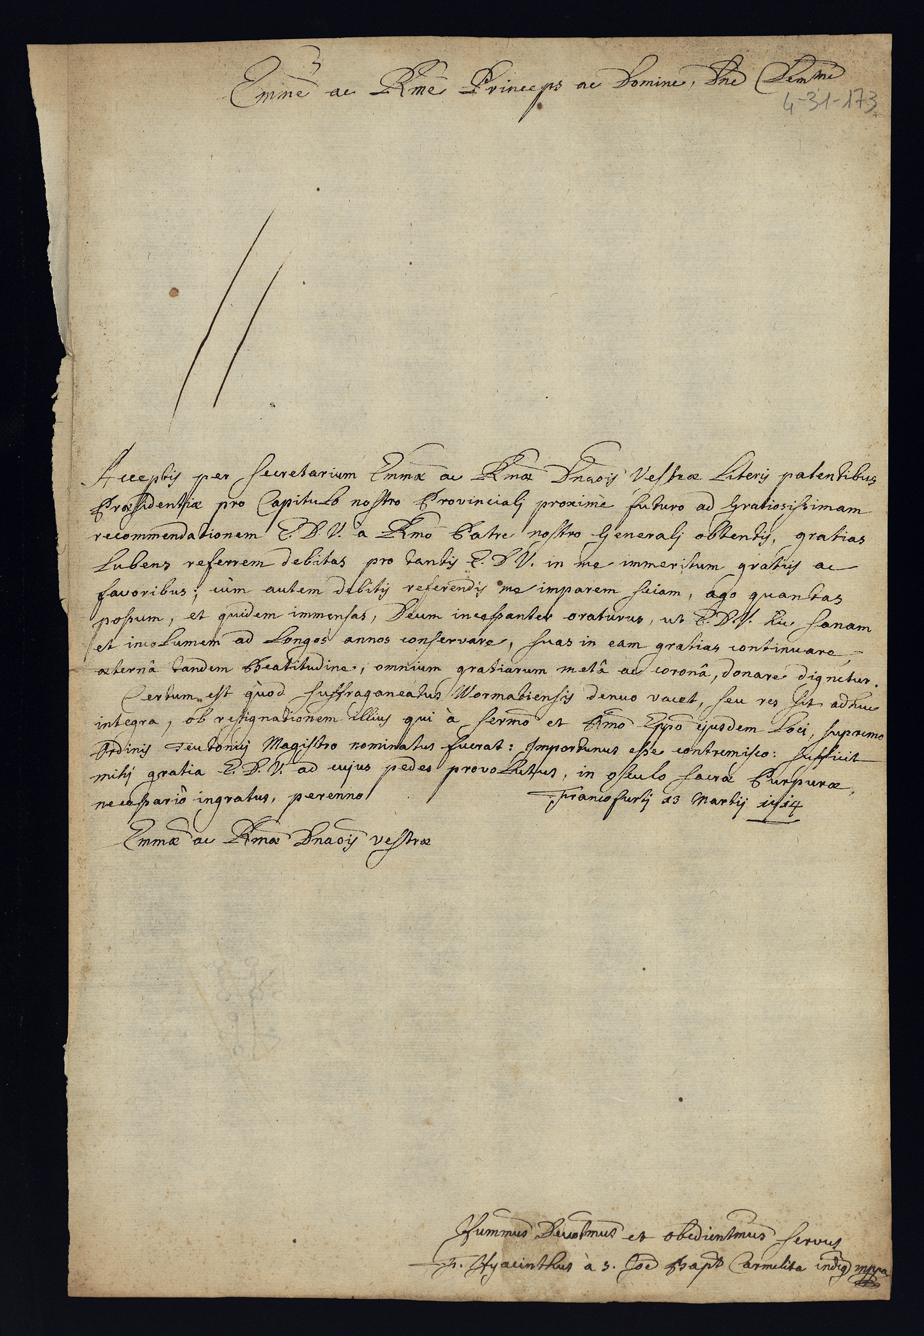 Emme ac Rme Princeps ac Domine, Dne Clemme
4-31-173
Acceptis per Secretarium Emmæ ac Rmæ Dnaois Vestræ Literis patentibus
Præsidentiæ pro Capitulo nostro Provinciali proxime futuro ad Gratiosissimam
recommendationem E.D.V. à Rmo Patre nostro Generali obtentis, gratias
Lubens referrem debitas pro tantis E.D.V. in me immeritum gratiis ac
favoribus; cùm autem debitis referendis me imparem sciam, ago quantas
possum, et quidem immensas, Deum incessanter oraturus, ut E.D.V. hic sanam
et incolumem ad Longos annos conservare, suas in eam gratias continuare,
æternâ tandem Beatitudine, omnium gratiarum metâ ac coronâ, donare dignetur.
Certum est quod Suffraganeatus Wormatiensis denuo vacet, seu res sit adhuc
integra, ob resignationem illius qui à Sermo et Rmo Eppo ejusdem Loci, supremo
Ordinis Teutonici Magistro nominatus fuerat: Importunus esse contremisco: sufficit
mihi gratia E.D.V. ad cujus pedes provolutus, in osculo sacræ Purpuræ,
necessariò ingratus, perenno
Francofurti 13 Martij 1714
Emmæ ac Rmæ Dnaois vestræ
Hummus Devotmus et obedientmus servus
F. Hyacinthus à S. Joe Bapta Carmelita indig mppa